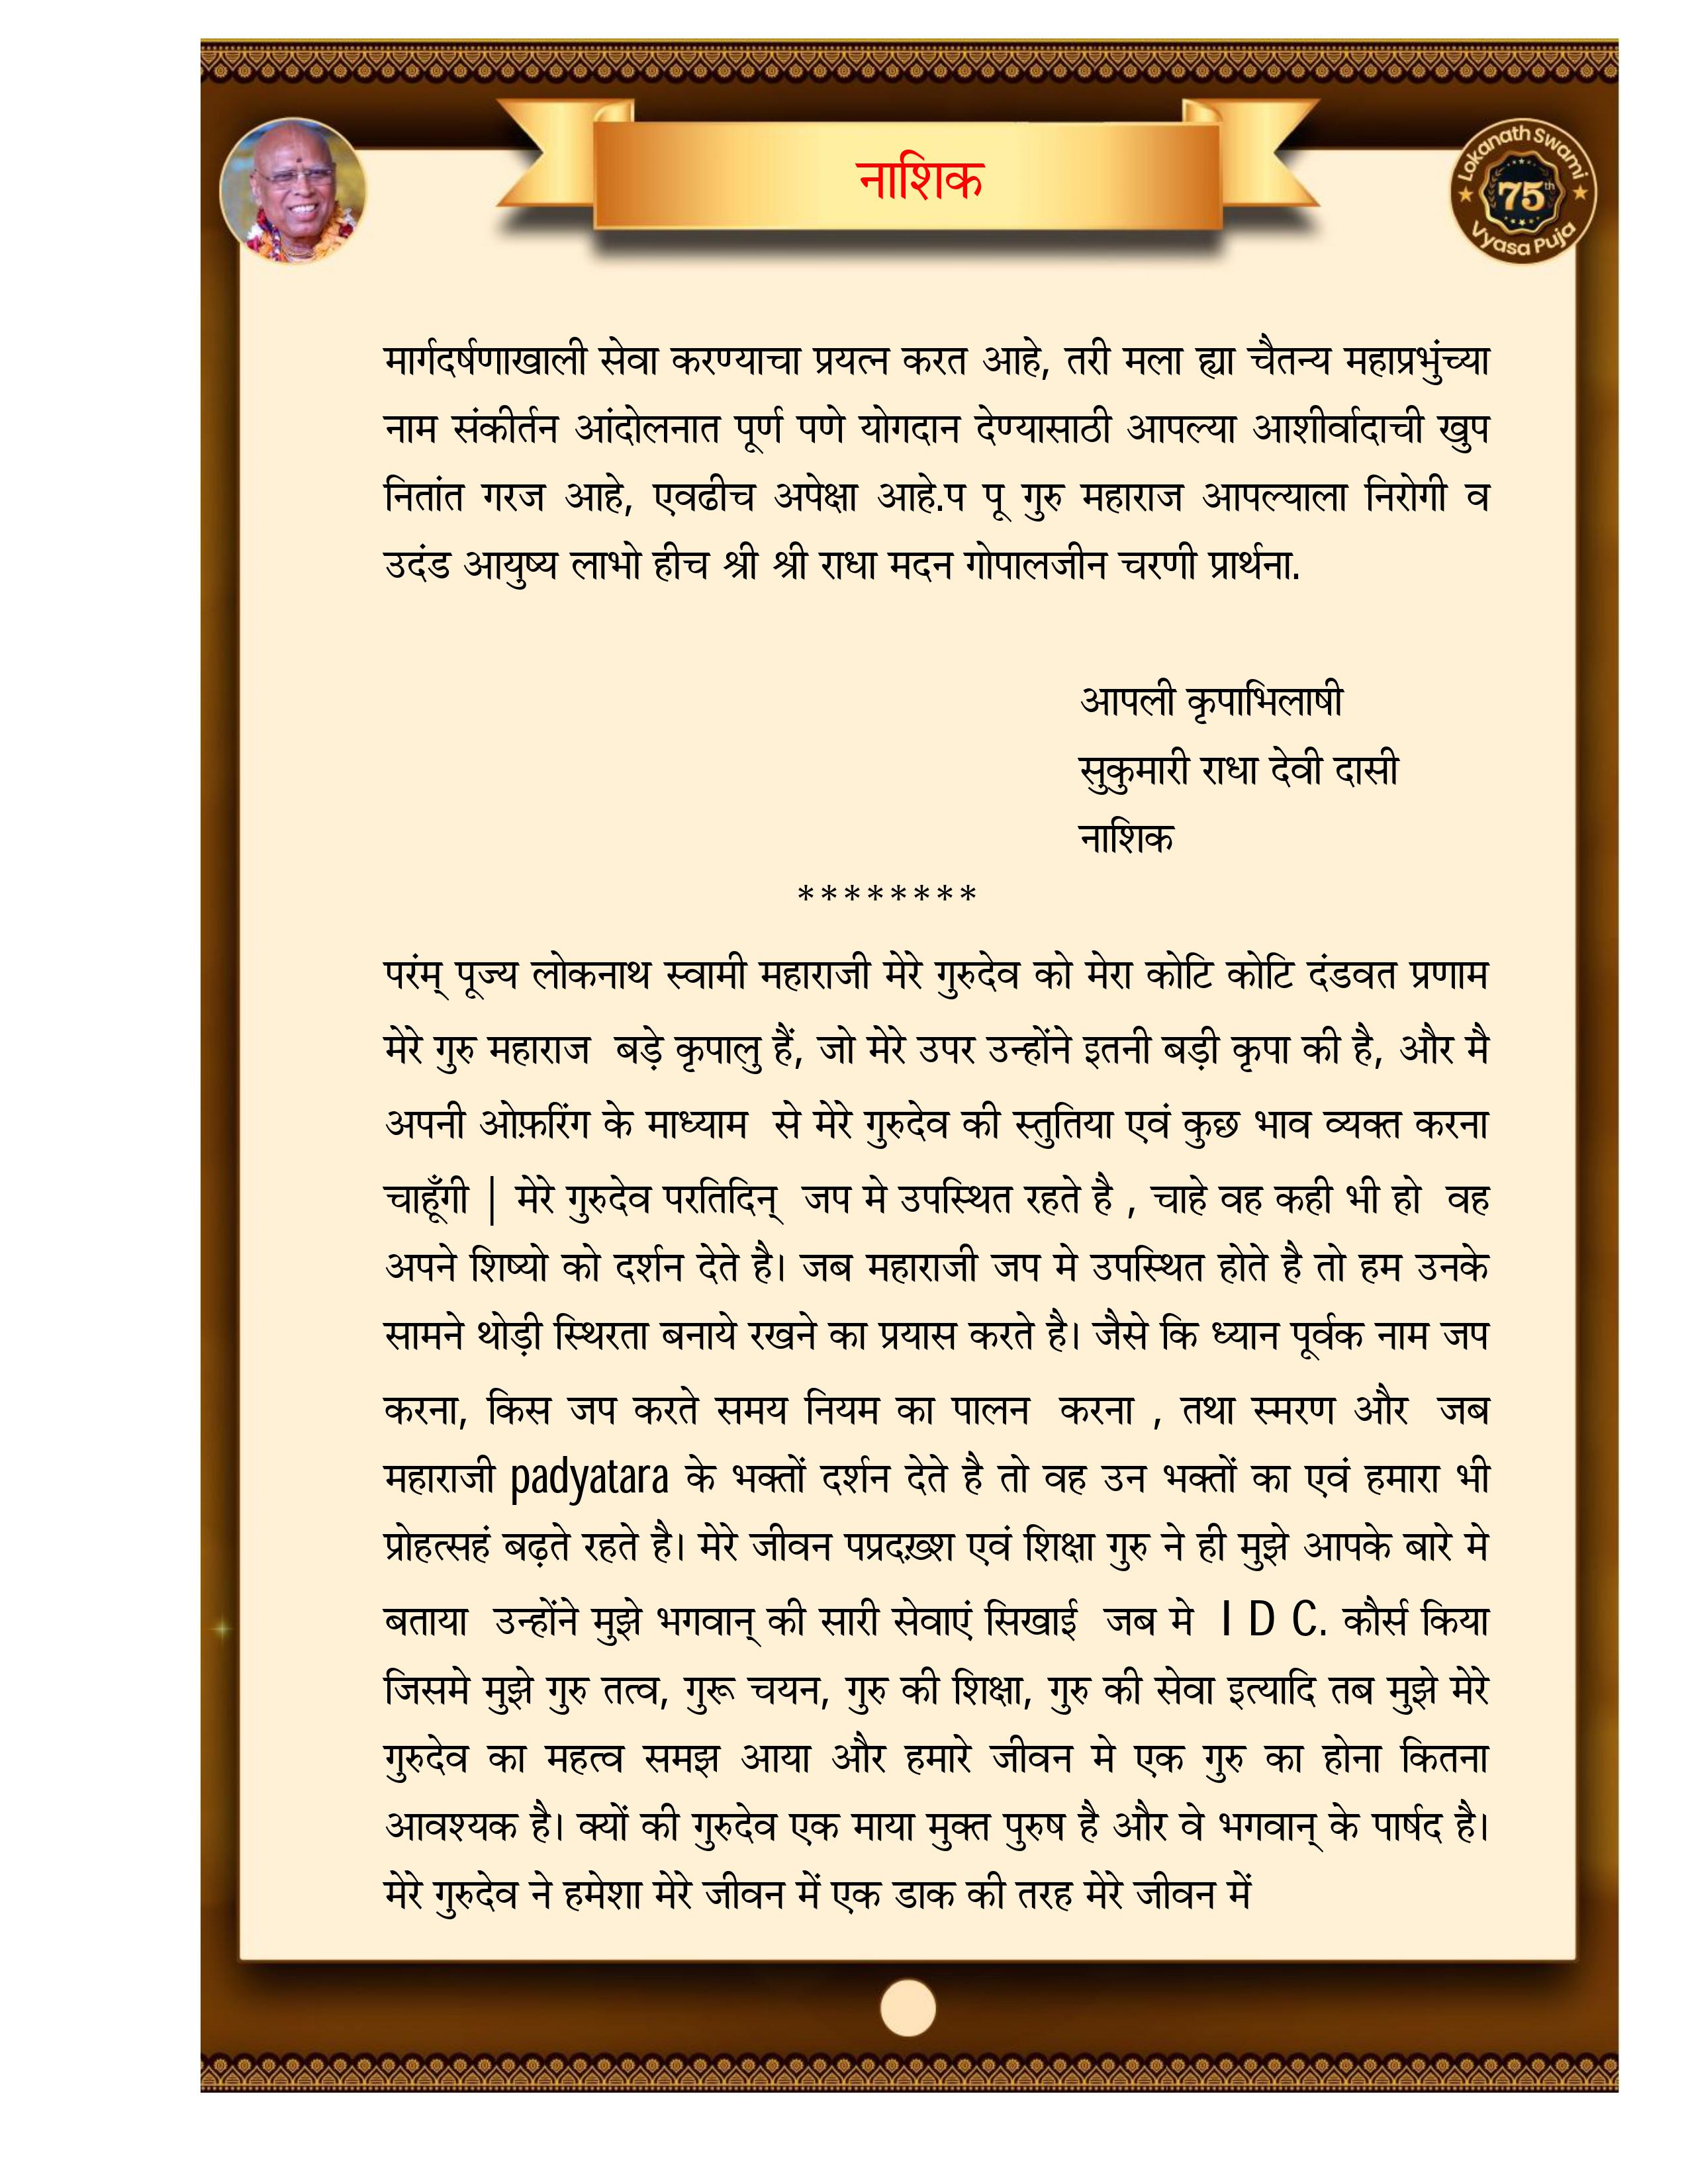 नाशिक
Lokanath Swami
75th
Vyasa Puja
मार्गदर्षणाखाली सेवा करण्याचा प्रयत्न करत आहे, तरी मला ह्या चैतन्य महाप्रभुंच्या
नाम संकीर्तन आंदोलनात पूर्ण पणे योगदान देण्यासाठी आपल्या आशीर्वादाची खुप
नितांत गरज आहे, एवढीच अपेक्षा आहे.प पू गुरु महाराज आपल्याला निरोगी व
उदंड आयुष्य लाभो हीच श्री श्री राधा मदन गोपालजीन चरणी प्रार्थना.
आपली कृपाभिलाषी
सुकुमारी राधा देवी दासी
नाशिक
********
परंम् पूज्य लोकनाथ स्वामी महाराजी मेरे गुरुदेव को मेरा कोटि कोटि दंडवत प्रणाम
मेरे गुरु महाराज बड़े कृपालु हैं, जो मेरे उपर उन्होंने इतनी बड़ी कृपा की है, और मै
अपनी ओफ़रिंग के माध्याम से मेरे गुरुदेव की स्तुतिया एवं कुछ भाव व्यक्त करना
चाहूँगी | मेरे गुरुदेव परतिदिन् जप मे उपस्थित रहते है , चाहे वह कही भी हो वह
अपने शिष्यो को दर्शन देते है। जब महाराजी जप मे उपस्थित होते है तो हम उनके
सामने थोड़ी स्थिरता बनाये रखने का प्रयास करते है। जैसे कि ध्यान पूर्वक नाम जप
करना, किस जप करते समय नियम का पालन करना , तथा स्मरण और जब
महाराजी padyatara के भक्तों दर्शन देते है तो वह उन भक्तों का एवं हमारा भी
प्रोहत्सहं बढ़ते रहते है। मेरे जीवन पप्रदख़्श एवं शिक्षा गुरु ने ही मुझे आपके बारे मे
बताया उन्होंने मुझे भगवान् की सारी सेवाएं सिखाई जब मे I D C. कौर्स किया
जिसमे मुझे गुरु तत्व, गुरू चयन, गुरु की शिक्षा, गुरु की सेवा इत्यादि तब मुझे मेरे
गुरुदेव का महत्व समझ आया और हमारे जीवन मे एक गुरु का होना कितना
आवश्यक है। क्यों की गुरुदेव एक माया मुक्त पुरुष है और वे भगवान् के पार्षद है।
मेरे गुरुदेव ने हमेशा मेरे जीवन में एक डाक की तरह मेरे जीवन में